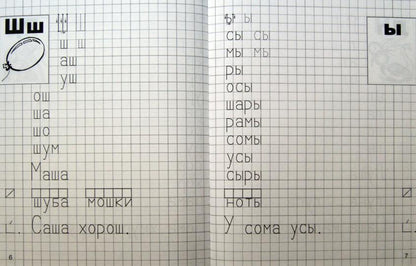 Шш Ш Ш
ш ш
аш
уш
ош
ша
шо
шум
Маша
шуба мошки
Саша хорош.
6
ы
ы ы
сы сы
мы мы
ры
осы
шары
рамы
сомы
усы
сыры
ноты
У сома усы.
7